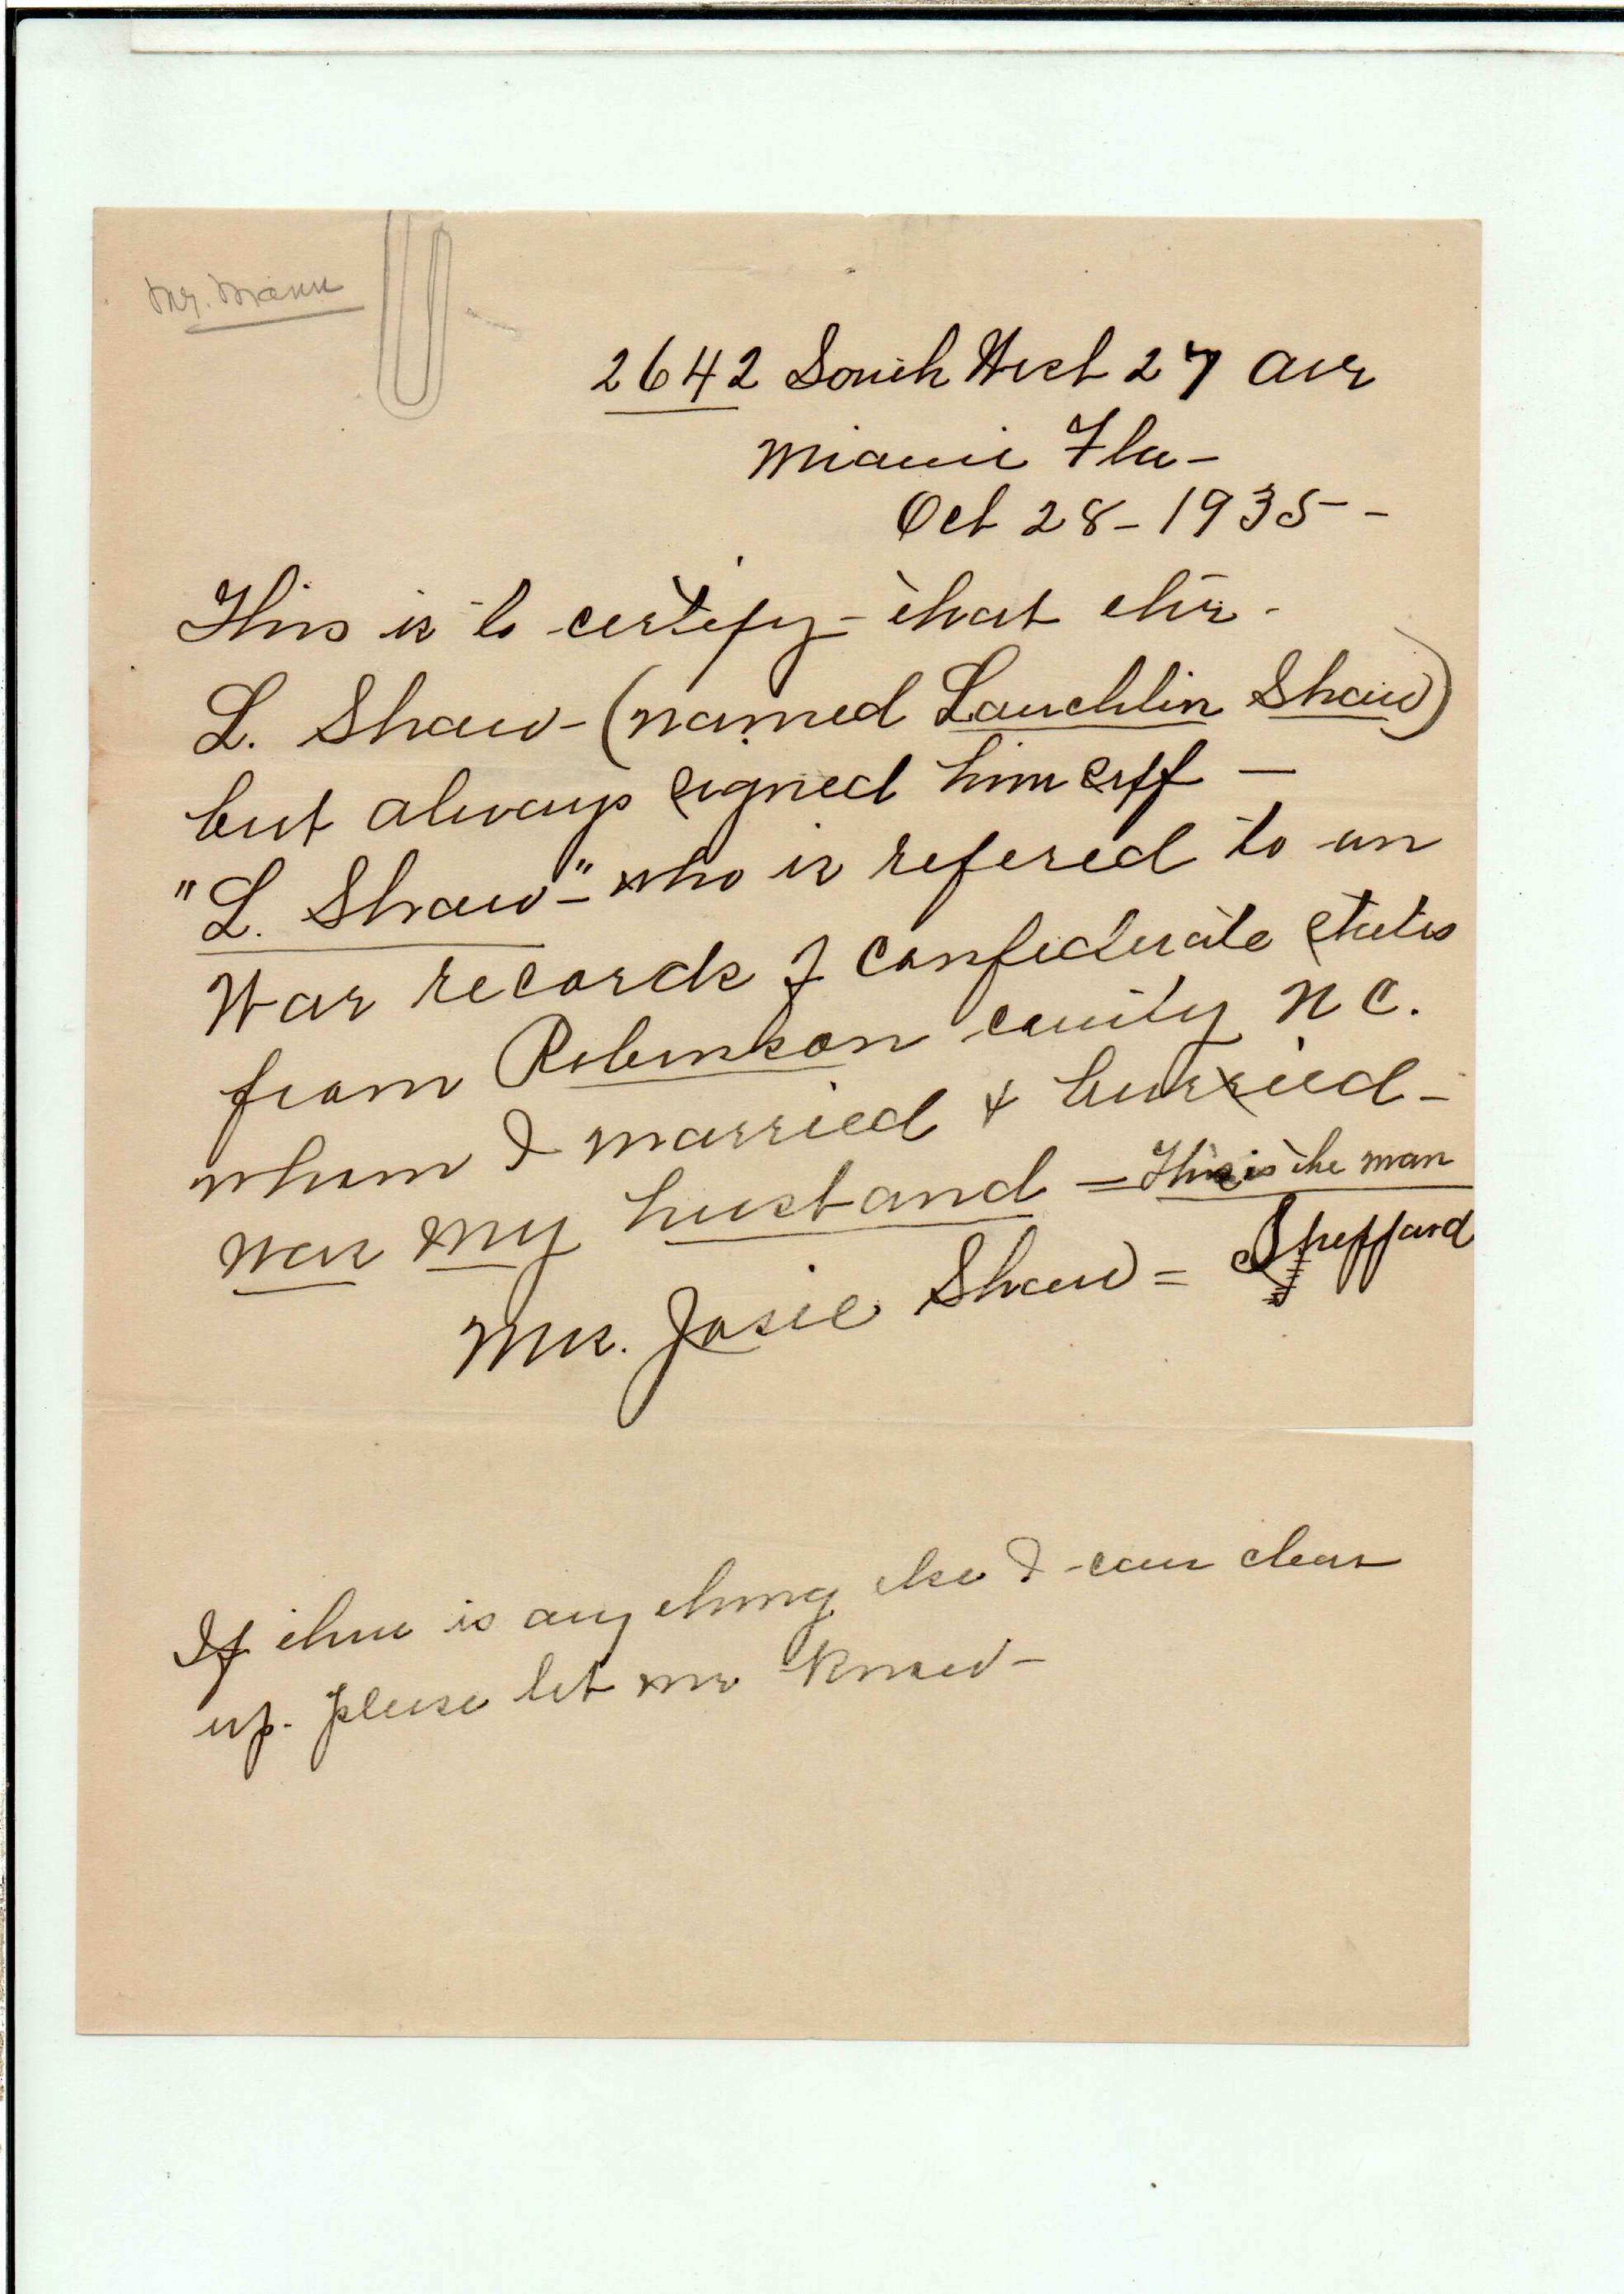 Mr. Mann
2642 South West 27 ave
Miami Fla-
Oct 28-1935-
This is to certify-that the
L. Shaw-(named Lauchlin Shaw)
but always signed him self —
"L. Shaw-" who is refered to in
War records of confederate states
from Robinson county N C.
whom I married & burried-
was my husband = This is the man
Mrs. Josie Shaw = Sheffard
If there is any thing else I can clear
up. please let me know-